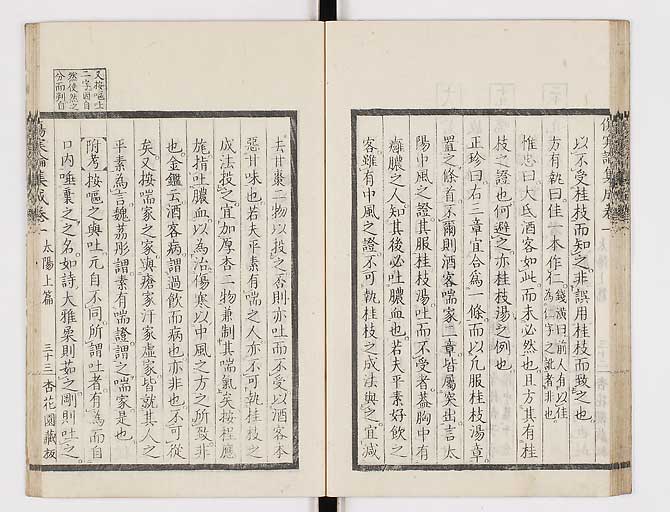 以不受桂枝而知之。非誤用桂枝而致之也。
方有執曰。佳一本作仁。錢潢曰前人有以佳為仁字之訛者非也。
惟忠曰大氐酒客如此。而未必然也。且方其有桂
枝之證也。何避之。亦桂枝湯之例也。
正珍曰。右三章宜合為一條。而以凡服桂枝湯章。
置之條首。不爾則酒客喘家二章皆屬突出。言太
陽中風之證。其服桂枝湯吐而不受者。蓋胸中有
癰膿之人。知其後必吐膿血也。若夫平素好飲之
客。雖有中風之證。不可執桂枝之成法與之。宜減
去甘棗二物以投之。否則亦吐而不受。以酒客本
惡甘味也。若夫平素有喘之人。亦不可執桂枝之
成法投之。宜加厚杏二物兼制其喘氣矣。按程應
旄指吐膿血。以為治傷寒以中風之方之所致。非
也。金鑑云酒客病謂過飲而病也。亦非也。不可從
矣。又按喘家之家。與瘡家汗家虛家。皆就其人之
平素為言。魏荔彤謂素有喘證。謂之喘家是也。
附考 按嘔之與吐。元自不同。所謂吐者。有為而自
口內唾囊之之名。如詩大雅柔則茹之。剛則吐之。
又按嘔吐
二字。因自
然使然之
分而判自
傷寒論集成卷一 太陽上篇 三十三 杏花園藏板